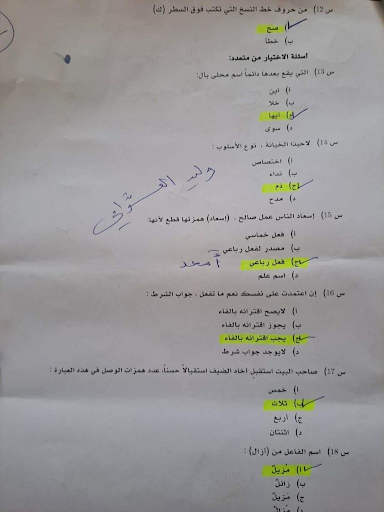 س 12) من حروف خط النسخ التي تكتب فوق السطر (ك)
أ) صح
ب) خطأ
أسئلة الاختيار من متعدد:
س 13) التي يقع بعدها دائماً اسم محلى بأل:
أ) أين
ب) خلا
ج) أيها
د) سوى
س 14) لاحبذا الخيانة ، نوع الأسلوب :
أ) اختصاص
ب) نداء
ج) ذم
د) مدح
وليد
س 15) إسعاد الناس عمل صالح ، (إسعاد) همزتها قطع لأنها:
أ) فعل خماسي
ب) مصدر لفعل رباعي
ج) فعل رباعي
أسعد
د) اسم علم
س 16) إن اعتمدت على نفسك نعم ما تفعل ، جواب الشرط :
أ) لايصح اقترانه بالفاء
ب) يجوز اقترانه بالفاء
ج) يجب اقترانه بالفاء
د) لايوجد جواب شرط
س 17) صاحب البيت استقبل أخاد الضيف استقبالاً حسناً، عدد همزات الوصل في هذه العبارة :
أ) خمس
ب) ثلاث
ج) أربع
د) اثنتان
س 18) اسم الفاعل من (أزال) :
أ) مُزيل
ب) زائل
ج) مَزيل